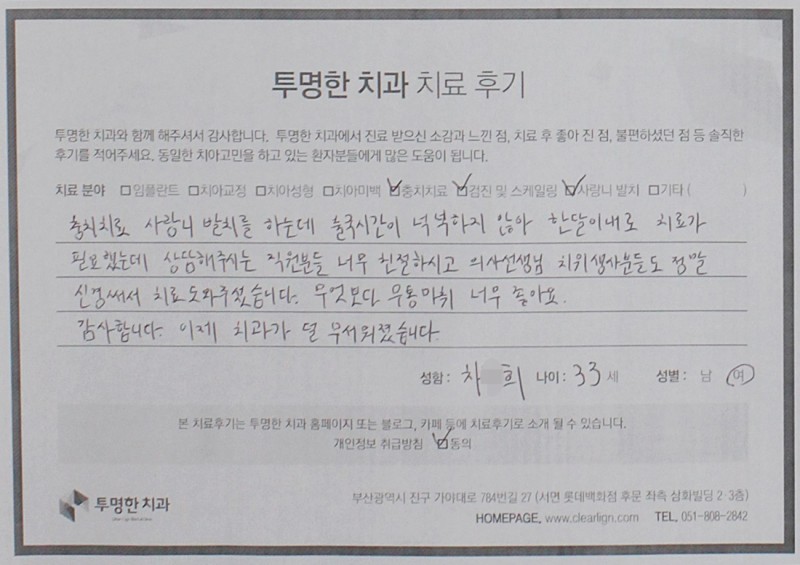 투명한 치과 치료 후기
투명한 치과와 함께 해주셔서 감사합니다. 투명한 치과에서 진료 받으신 소감과 느낀 점, 치료 후 좋아 진 점, 불편하셨던 점 등 솔직한
후기를 적어주세요. 동일한 치아고민을 하고 있는 환자분들에게 많은 도움이 됩니다.
치료 분야 □임플란트 □치아교정 □치아성형 □치아미백 ☑충치치료 ☑검진 및 스케일링 ☑사랑니 발치 □기타 ( )
충치치료 사랑니 발치를 하는데 출국시간이 넉넉하지 않아 한달이내로 치료가
필요했는데 상담해주시는 직원분들 너무 친절하시고 의사선생님 치위생사분들도 정말
신경써서 치료 도와주셨습니다. 무엇보다 무통마취 너무 좋아요.
감사합니다. 이제 치과가 덜 무서워졌습니다.
성함 : 차 희 나이 : 33 세 성별 : 남 여
본 치료후기는 투명한 치과 홈페이지 또는 블로그, 카페 등에 치료후기로 소개 될 수 있습니다.
개인정보 취급방침 ☑동의
투명한 치과
부산광역시 진구 가야대로 784번길 27 (서면 롯데백화점 후문 좌측 삼화빌딩 2·3층)
HOMEPAGE. www.clearlign.com TEL. 051-808-2842